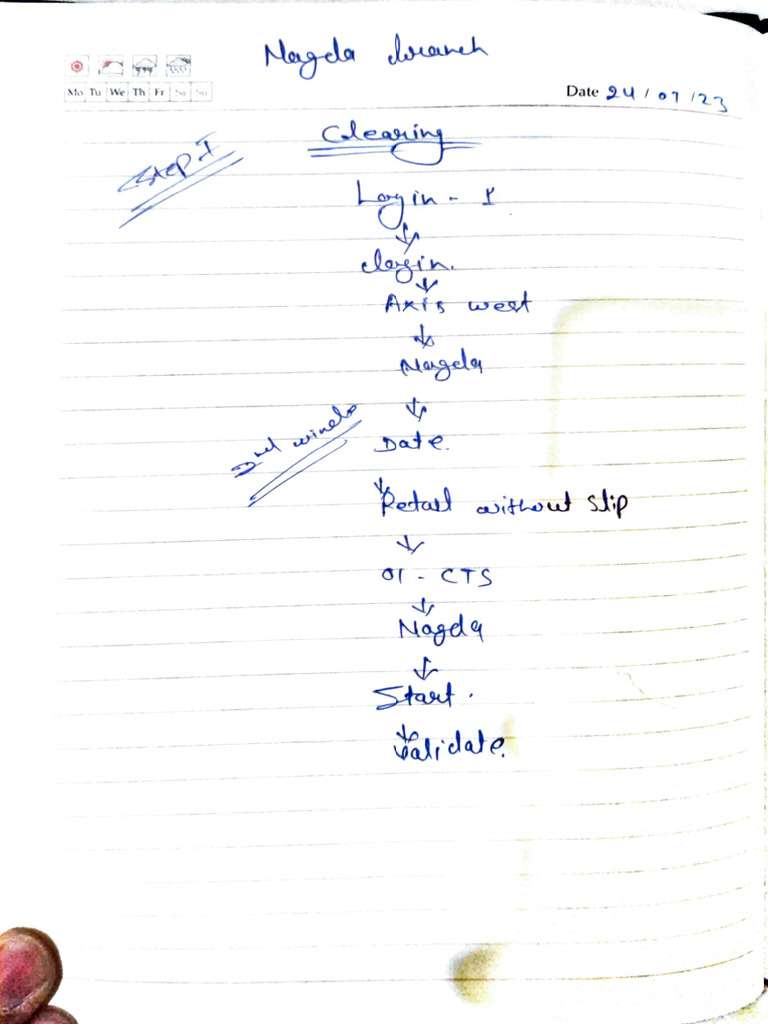 Nagda branch
Mo Tu We Th Fr Sa Su
Date 24/07/23
Step I
Clearing
Login - 1
login.
Axis west
Nagda
2nd window
Date.
Retail without slip
01 - CTS
Nagda
Start.
Validate.